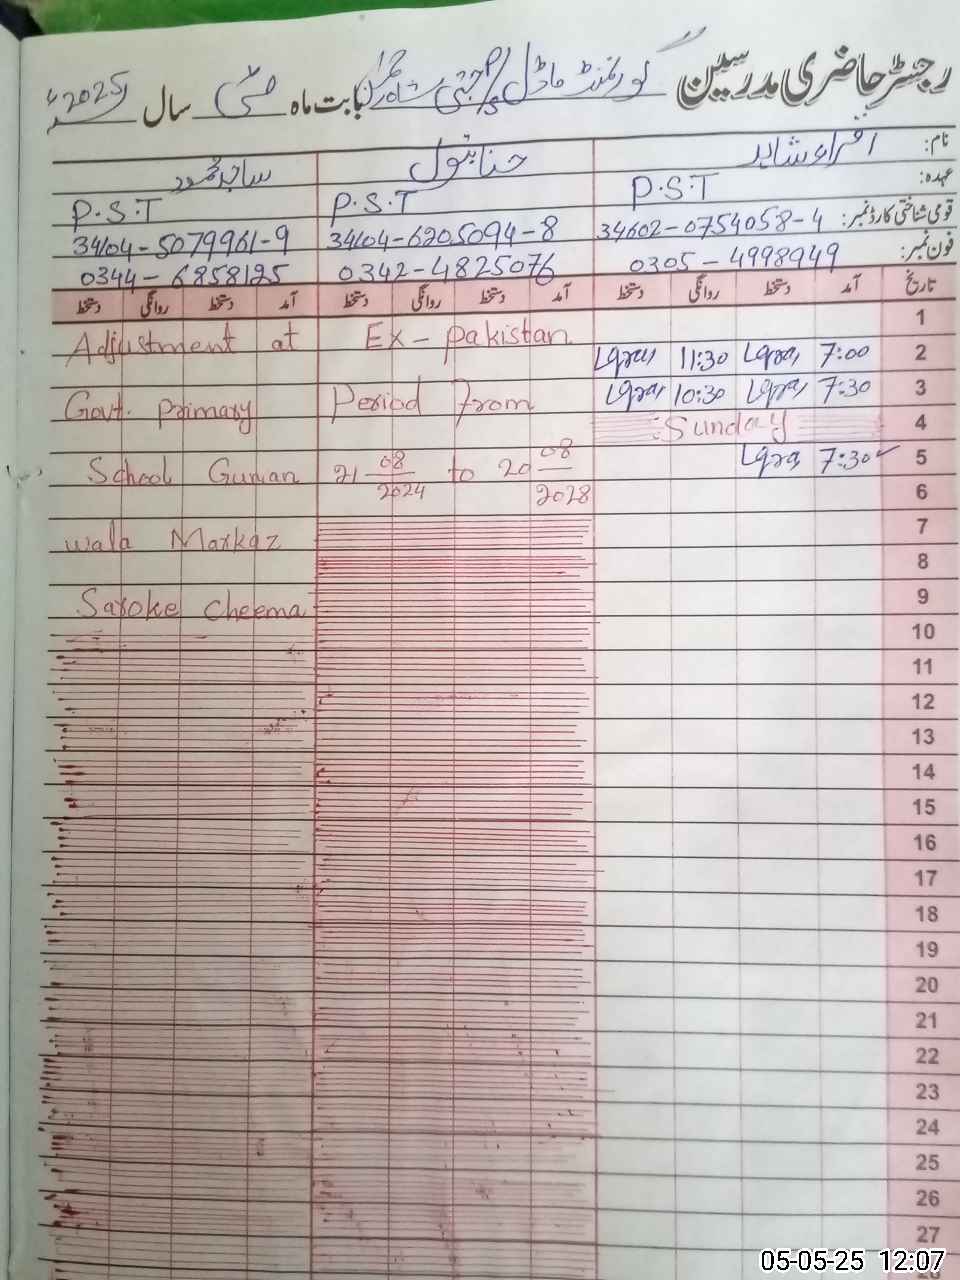 رجسٹر حاضری مدرسین گورنمنٹ ماڈل P/S بابت ماہ مئی سال 2025ء
نام: اقراء شاہد حنا بتول ساجد محمود
عہدہ: P.S.T P.S.T P.S.T
قومی شناختی کارڈ نمبر: 34602-0754058-4 34104-6205094-8 34104-5079961-9
فون نمبر: 0305-4998949 0342-4825076 0344-6858125
تاریخ آمد دستخط روانگی دستخط آمد دستخط روانگی دستخط آمد دستخط روانگی دستخط
1
Adjustment at Ex-Pakistan
Iqra 11:30 Iqra 7:00 2
Govt. Primary Period From Iqra 10:30 Iqra 7:30 3
Sunday 4
School Guman 21 08/2024 to 20 08/2028 Iqra 7:30 5
6
Wala Markaz 7
8
Saroke Cheema 9
10
11
12
13
14
15
16
17
18
19
20
21
22
23
24
25
26
27
05-05-25 12:07